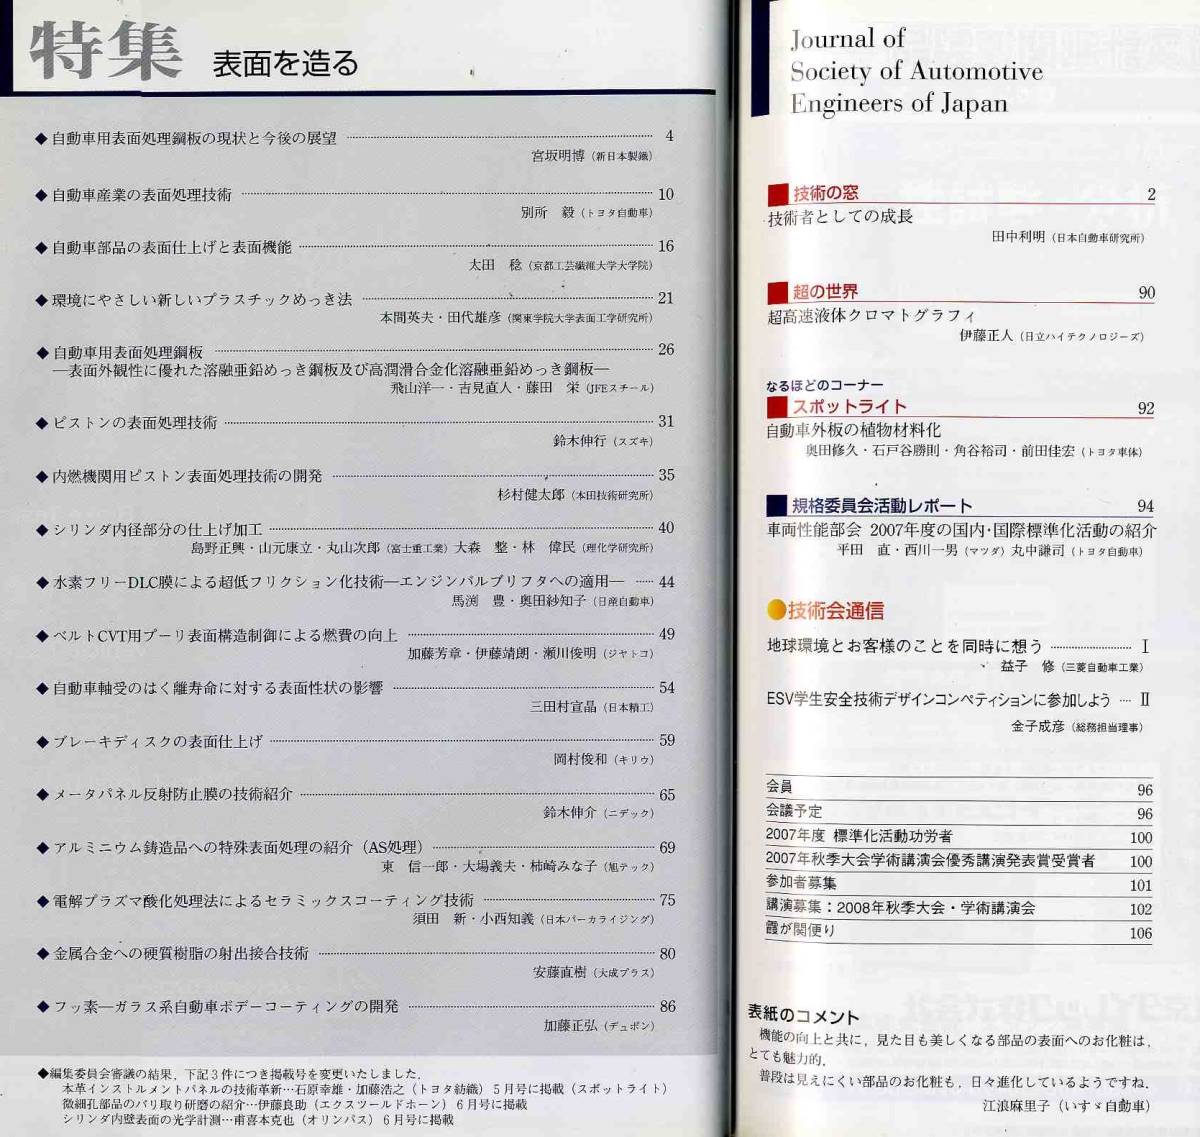 特集 表面を造る
◆自動車用表面処理鋼板の現状と今後の展望 4
宮坂明博（新日本製鐵）
◆自動車産業の表面処理技術 10
別所 毅（トヨタ自動車）
◆自動車部品の表面仕上げと表面機能 16
太田 稔（京都工芸繊維大学大学院）
◆環境にやさしい新しいプラスチックめっき法 21
本間英夫・田代雄彦（関東学院大学表面工学研究所）
◆自動車用表面処理鋼板 26
―表面外観性に優れた溶融亜鉛めっき鋼板及び高潤滑合金化溶融亜鉛めっき鋼板―
飛山洋一・吉見直人・藤田 栄（JFEスチール）
◆ピストンの表面処理技術 31
鈴木伸行（スズキ）
◆内燃機関用ピストン表面処理技術の開発 35
杉村健太郎（本田技術研究所）
◆シリンダ内径部分の仕上げ加工 40
島野正興・山元康立・丸山次郎（富士重工業）大森 整・林 偉民（理化学研究所）
◆水素フリーDLC膜による超低フリクション化技術―エンジンバルブリフタへの適用― 44
馬渕 豊・奥田紗知子（日産自動車）
◆ベルトCVT用プーリ表面構造制御による燃費の向上 49
加藤芳章・伊藤靖朗・瀬川俊明（ジヤトコ）
◆自動車軸受のはく離寿命に対する表面性状の影響 54
三田村宣晶（日本精工）
◆ブレーキディスクの表面仕上げ 59
岡村俊和（キリウ）
◆メータパネル反射防止膜の技術紹介 65
鈴木伸介（ニデック）
◆アルミニウム鋳造品への特殊表面処理の紹介（AS処理） 69
東 信一郎・大場義夫・柿崎みな子（旭テック）
◆電解プラズマ酸化処理法によるセラミックスコーティング技術 75
須田 新・小西知義（日本パーカライジング）
◆金属合金への硬質樹脂の射出接合技術 80
安藤直樹（大成プラス）
◆フッ素―ガラス系自動車ボデーコーティングの開発 86
加藤正弘（デュポン）
◆編集委員会審議の結果，下記3件につき掲載号を変更いたしました．
本革インストルメントパネルの技術革新…石原幸雄・加藤浩之（トヨタ紡織）5月号に掲載（スポットライト）
微細孔部品のバリ取り研磨の紹介…伊藤良助（エクスツールドホーン）6月号に掲載
シリンダ内壁表面の光学計測…甫喜本克也（オリンパス）6月号に掲載
Journal of
Society of Automotive
Engineers of Japan
技術の窓 2
技術者としての成長
田中利明（日本自動車研究所）
超の世界 90
超高速液体クロマトグラフィ
伊藤正人（日立ハイテクノロジーズ）
なるほどのコーナー
スポットライト 92
自動車外板の植物材料化
奥田修久・石戸谷勝則・角谷裕司・前田佳宏（トヨタ車体）
規格委員会活動レポート 94
車両性能部会 2007年度の国内・国際標準化活動の紹介
平田 直・西川一男（マツダ）丸中謙司（トヨタ自動車）
技術会通信
地球環境とお客様のことを同時に想う Ⅰ
益子 修（三菱自動車工業）
ESV学生安全技術デザインコンペティションに参加しよう Ⅱ
金子成彦（総務担当理事）
会員 96
会議予定 96
2007年度 標準化活動功労者 100
2007年秋季大会学術講演会優秀講演発表賞受賞者 100
参加者募集 101
講演募集：2008年秋季大会・学術講演会 102
霞が関便り 106
表紙のコメント
機能の向上と共に，見た目も美しくなる部品の表面へのお化粧は，
とても魅力的．
普段は見えにくい部品のお化粧も，日々進化しているようですね．
江浪麻里子（いすゞ自動車）